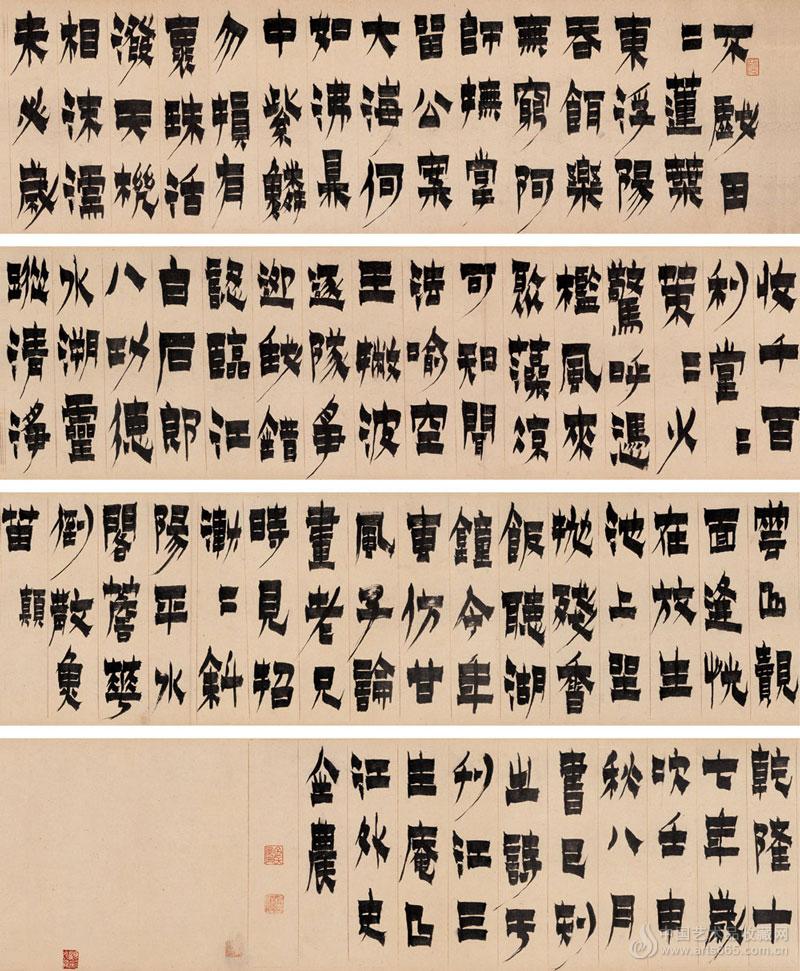 不戲田
二蓮葉
東浮陽
吞餌樂
無窮阿
師撫掌
留公案
大海何
如沸鼎
中紫鱗
勿損有
活
潑天機
相沫濡
未必歲
收千百
利堂二
策二火
驚呼憑
檻風來
散藻涼
可知聞
法喻空
王波
逐隊爭
迎鈸錯
認臨江
白石郎
八功德
水湖靈
蹤清淨
雲山觀
面逢恍
在放生
池上坐
拋殘香
飯聽湖
鐘今年
事仿甘
風子論
畫老兄
時見招
漸二斜
陽平水
閣薝華
倒散魚
苗顛
乾隆十
七年歲
次壬申
秋八月
書已刻
之詩于
江三
生庵曲
江外史
金農
中国艺术品收藏网
www.arts365.com.cn